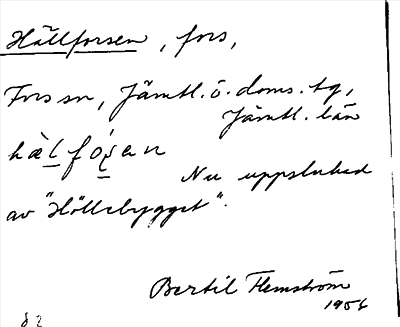 Hällforsen, fors,
Fors sn, Jämtl. ö. doms. tg,
Jämtl. län
hälfo̩ṣen
Nu uppslukad
av "Höllebygget".
Bertil Flemström
1956
82